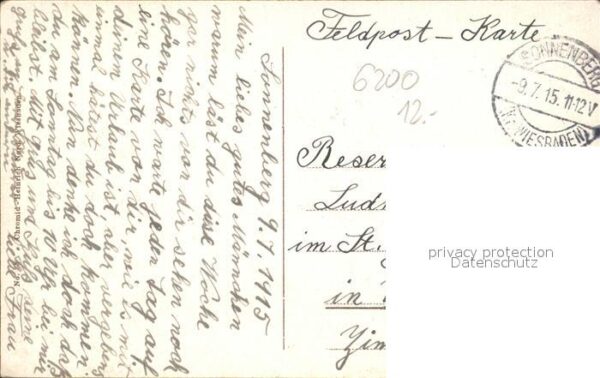 Feldpost-Karte
SONNENBERG
-9.7.15. 11-12V
(WIESBADEN)
6200
12.-
Reser
Lud
im St.
in
Zim
privacy protection
Datenschutz
Sonnenberg 9.7.1915
Mein liebes gutes Männchen
warum läst du diese Woche
gar nichts von dir sehen noch
hören. Ich warte jeden Tag auf
eine Karte von dir, wie is mit
deinen Urlaub ist aber vergebens
einmal hätest du doch kommen
können. Nun denke ich doch daß
du am Sonntag bis 10 Uhr bei mir
bleibst. Mit
Frau